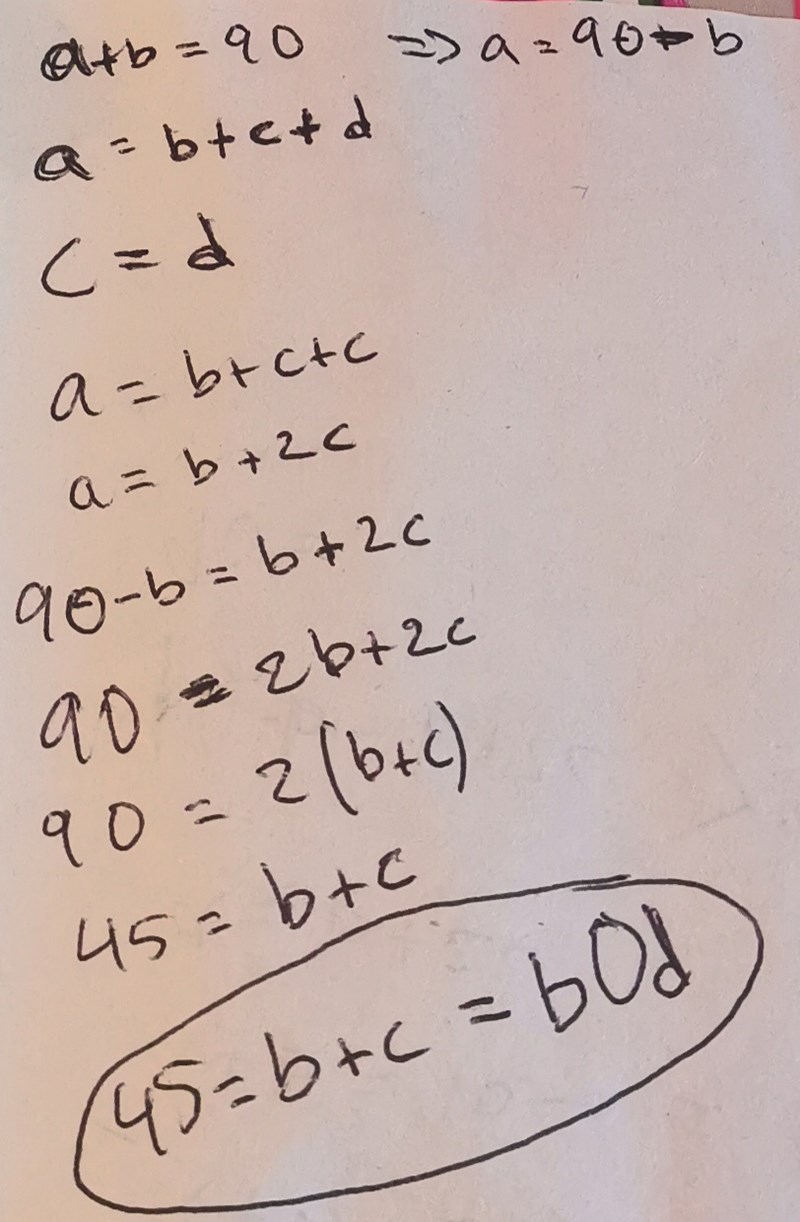 a+b = 90 => a = 90 - b
a = b+c+d
c = d
a = b+c+c
a = b+2c
90-b = b+2c
90 = 2b+2c
90 = 2(b+c)
45 = b+c
45 = b+c = bOd